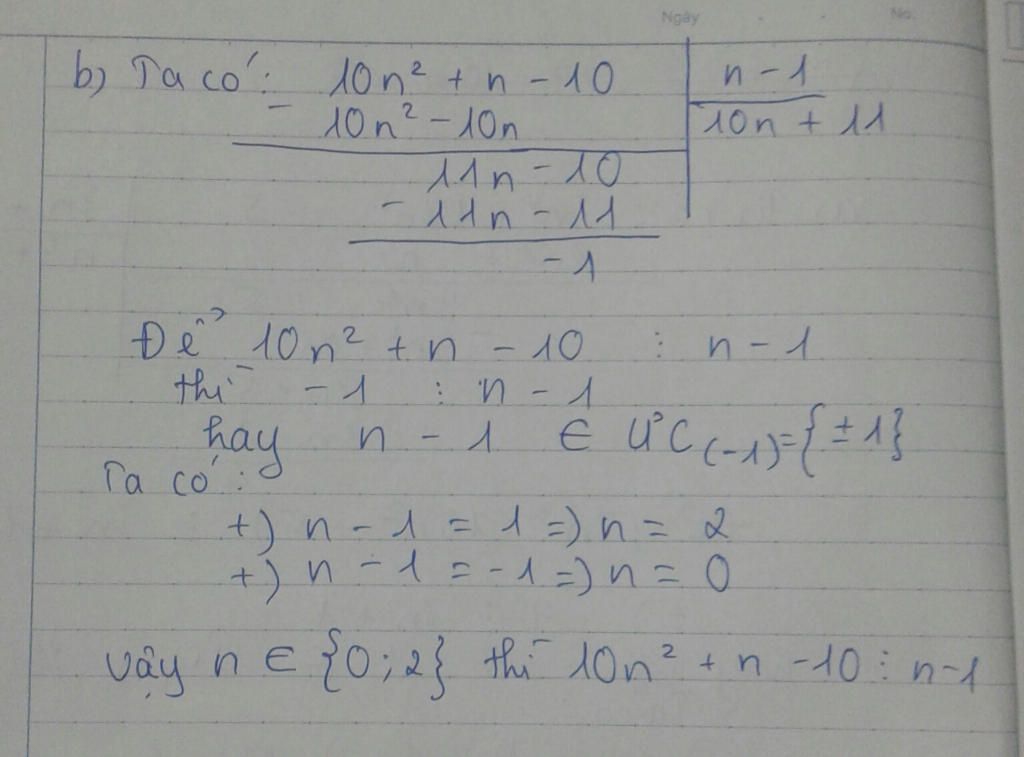 Ngày No.
b) Ta có: 10n² + n - 10 | n - 1
- 10n² - 10n | 10n + 11
11n - 10
- 11n - 11
-1
Để 10n² + n - 10 ⋮ n - 1
thì -1 ⋮ n - 1
hay n - 1 ∈ ƯC(-1)={±1}
Ta có:
+) n - 1 = 1 => n = 2
+) n - 1 = -1 => n = 0
Vậy n ∈ {0;2} thì 10n² + n - 10 ⋮ n-1